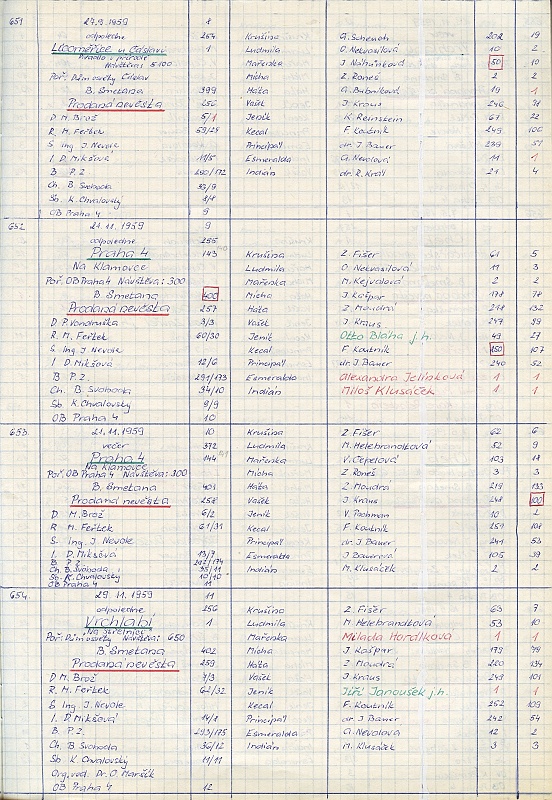 651 27.9.1959 8
odpoledne 254 Krušina G. Schenoh 202 19
Liboměřice u Čáslavi 1 Ludmila O. Nekvasilová 10 2
Divadlo v přírodě Návštěva: 5100 Mařenka J. Náhunková 50 10
Poř. Dům osvěty Čáslav Mícha Z. Roneš 2 2
B. Smetana 399 Háta G. Bubníková 19 1
Prodaná nevěsta 256 Vašek J. Kraus 246
D M. Brož 5/1 Jeník K. Reinstein 67 22
R M. Feřtek 59/29 Kecal F. Koutník 249 100
S Ing. J. Nevole Principál dr. J. Bauer 239 51
I. D. Mikšová 11/5 Esmeralda A. Nevolová 11 1
B P. Z. 290/172 Indián dr. R. Král 21 4
Ch. B. Svoboda 33/9
S. K. Chvalovský 8/8
OB Praha 4 9
652 21.11.1959 9
odpoledne 255
Praha 4 143 Krušina Z. Fišer 61 5
Na Klamovce Ludmila O. Nekvasilová 11 3
Poř. OB Praha 4 Návštěva: 300 Mařenka M. Kejvalová 2 2
B. Smetana 400 Mícha J. Kašpar 178 78
Prodaná nevěsta 257 Háta Z. Moudrá 218 132
D P. Vondruška 3/3 Vašek J. Kraus 247 99
R M. Feřtek 60/30 Jeník Otto Bláha j.h. 49 27
S Ing. J. Nevole Kecal F. Koutník 250 107
I. D. Mikšová 12/6 Principál dr. J. Bauer 240 52
B P. Z. 291/173 Esmeralda Alexandra Jelínková 1 1
Ch. B. Svoboda 34/10 Indián Miloš Klusáček 1 1
Sb K. Chvalovský 9/9
OB Praha 4 10
653. 21.11.1959 10 Krušina Z. Fišer 62 6
večer 372 Ludmila M. Helebrandková 52 9
Praha 4 144 Mařenka V. Čepelová 103 18
Na Klamovce
Poř. OB Praha 4 Návštěva: 300 Mícha Z. Roneš 3 3
B. Smetana 401 Háta Z. Moudrá 219 133
Prodaná nevěsta 258 Vašek J. Kraus 248 100
D M. Brož 6/2 Jeník V. Pochman 10 2
R M. Feřtek 61/31 Kecal F. Koutník 251 108
S. Ing. J. Nevole Principál dr. J. Bauer 241 53
I. D. Mikšová 13/7 Esmeralda J. Bauerová 105 39
B P. Z. 292/174
Ch. B. Svoboda 35/11 Indián M. Klusáček 2 2
Sb. K. Chvalovský 10/10
OB Praha 4 11
654. 29.11.1959 11
odpoledne 256 Krušina Z. Fišer 63 7
Vrchlabí 1 Ludmila M. Helebrandková 53 10
Na Střelnici
Poř: Dům osvěty Návštěva: 650 Mařenka Milada Horálková 1 1
B. Smetana 402 Mícha J. Kašpar 179 79
Prodaná nevěsta 259 Háta Z. Moudrá 220 134
D M. Brož 7/3 Vašek J. Kraus 249 101
R M. Feřtek 62/32 Jeník Jiří Janoušek j.h. 1 1
S Ing. J. Nevole Kecal F. Koutník 252 109
I. D. Mikšová 14/8 Principál dr. J. Bauer 242 54
B P. Z. 293/175 Esmeralda A. Nevolová 12 2
Ch B. Svoboda 36/12 Indián M. Klusáček 3 3
Sb K. Chvalovský 11/11
Org. ved. Dr. O. Maršík
OB Praha 4 12